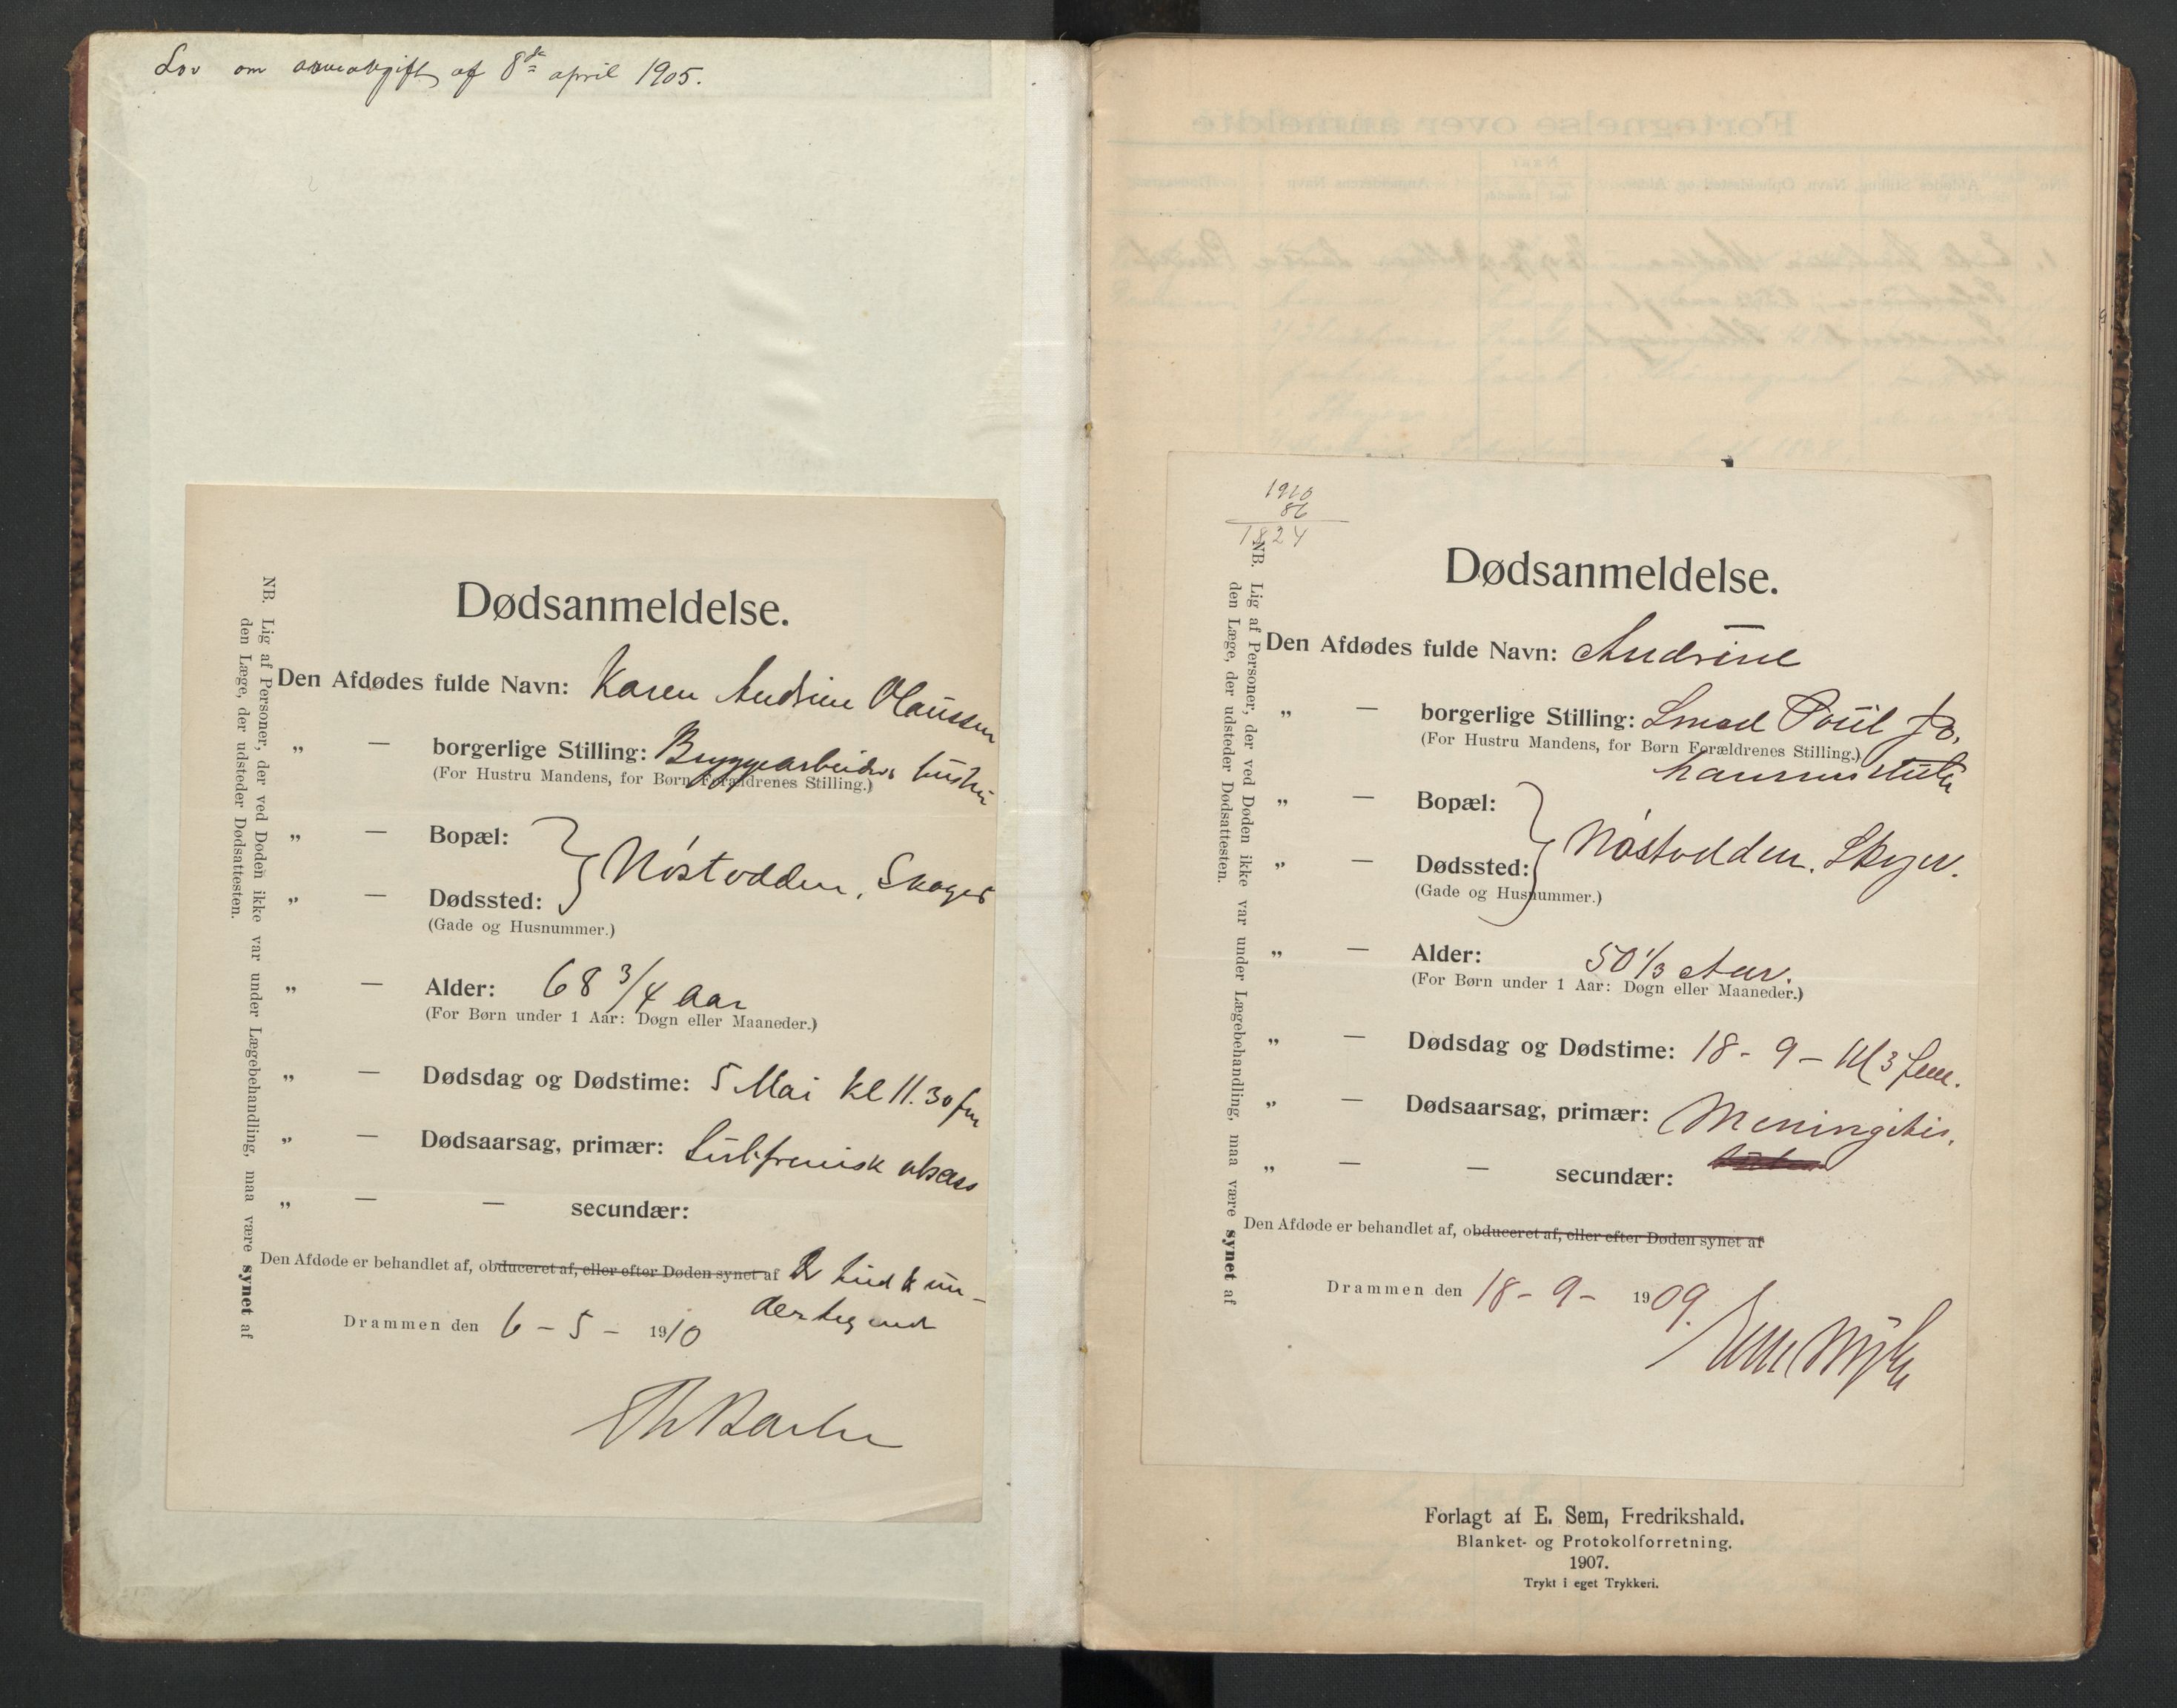 Lov om arveavgift af 8de april 1905.
Dødsanmeldelse.
Den Afdødes fulde Navn: Karen Andrine Olaussen
„ — borgerlige Stilling: Bryggearbeiders hustru
(For Hustru Mandens, for Børn Forældrenes Stilling.)
„ — Bopæl:
Nøstodden, Skoger
„ — Dødssted:
(Gade og Husnummer.)
„ — Alder: 68 3/4 aar
(For Børn under 1 Aar: Døgn eller Maaneder.)
„ — Dødsdag og Dødstime: 5 Mai kl 11.30 fm
„ — Dødsaarsag, primær: Subfrenisk absces
„ — — secundær:
Den Afdøde er behandlet af, obduceret af, eller efter Døden synet af Dr Lind & un-
dertegnede
Drammen den 6 - 5 - 1910
NB. Lig af Personer, der ved Døden ikke var under Lægebehandling, maa være synet af
den Læge, der udsteder Dødsattesten.
1910
86
1824
Dødsanmeldelse.
Den Afdødes fulde Navn: Andrine
„ — borgerlige Stilling: Smed Poul Jo-
hannes
(For Hustru Mandens, for Børn Forældrenes Stilling.)
„ — Bopæl:
Nøstodden. Skoger.
„ — Dødssted:
(Gade og Husnummer.)
„ — Alder: 50 1/3 Aar.
(For Børn under 1 Aar: Døgn eller Maaneder.)
„ — Dødsdag og Dødstime: 18 - 9 - Kl 3 fm.
„ — Dødsaarsag, primær: Meningitis.
„ — — secundær:
Den Afdøde er behandlet af, obduceret af, eller efter Døden synet af
Drammen den 18 - 9 - 1909.
NB. Lig af Personer, der ved Døden ikke var under Lægebehandling, maa være synet af
den Læge, der udsteder Dødsattesten.
Forlagt af E. Sem, Fredrikshald.
Blanket- og Protokolforretning.
1907.
Trykt i eget Trykkeri.